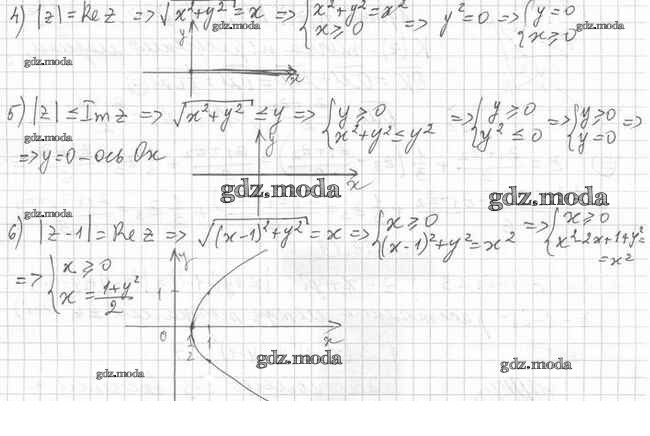 4) |z| = Re z => √x²+y² = x => { x²+y² = x² x ≥ 0 => y² = 0 => { y = 0 x ≥ 0
gdz.moda
gdz.moda
gdz.moda
y
gdz.moda
x
5) |z| ≤ Im z => √x²+y² ≤ y => { y ≥ 0 x²+y² ≤ y² => { y ≥ 0 y² ≤ 0 => { y ≥ 0 y = 0 =>
gdz.moda
=> y = 0 – ось Ox
y
x
gdz.moda
gdz.moda
gdz.moda
6) |z-1| = Re z => √(x-1)²+y² = x => { x ≥ 0 (x-1)²+y² = x² => { x ≥ 0 x²-2x+1+y² = = x²
=> { x ≥ 0 x = 1+y²/2
y
1
0 1/2 1 x
gdz.moda
gdz.moda
gdz.moda